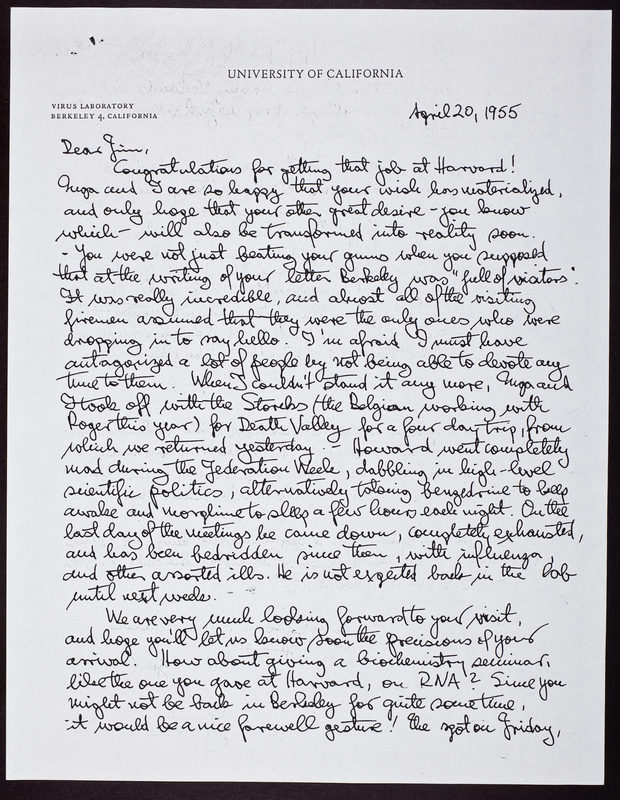 UNIVERSITY OF CALIFORNIA
VIRUS LABORATORY
BERKELEY 4, CALIFORNIA
April 20, 1955
Dear Jim,
Congratulations for getting that job at Harvard!
Inga and I are so happy that your wish has materialized,
and only hope that your other great desire - you know
which - will also be transformed into reality soon.
- You were not just beating your gums when you supposed
that at the writing of your letter Berkeley was "full of visitors".
It was really incredible, and almost all of the visiting
firemen assumed that they were the only ones who were
dropping in to say hello. I'm afraid I must have
antagonized a lot of people by not being able to devote any
time to them. When I couldn't stand it any more, Inga and
I took off with the Storcks (the Belgian working with
Roger this year) for Death Valley for a four day trip, from
which we returned yesterday. - Howard went completely
mad during the Federation Week, dabbling in high-level
scientific politics, alternatively taking benzedrine to keep
awake and morphine to sleep a few hours each night. On the
last day of the meetings he came down, completely exhausted,
and has been bedridden since then, with influenza,
and other assorted ills. He is not expected back in the lab
until next week.
We are very much looking forward to your visit,
and hope you'll let us know soon the precisions of your
arrival. How about giving a biochemistry seminar,
like the one you gave at Harvard, on RNA? Since you
might not be back in Berkeley for quite some time,
it would be a nice farewell gesture! The spot on Friday,